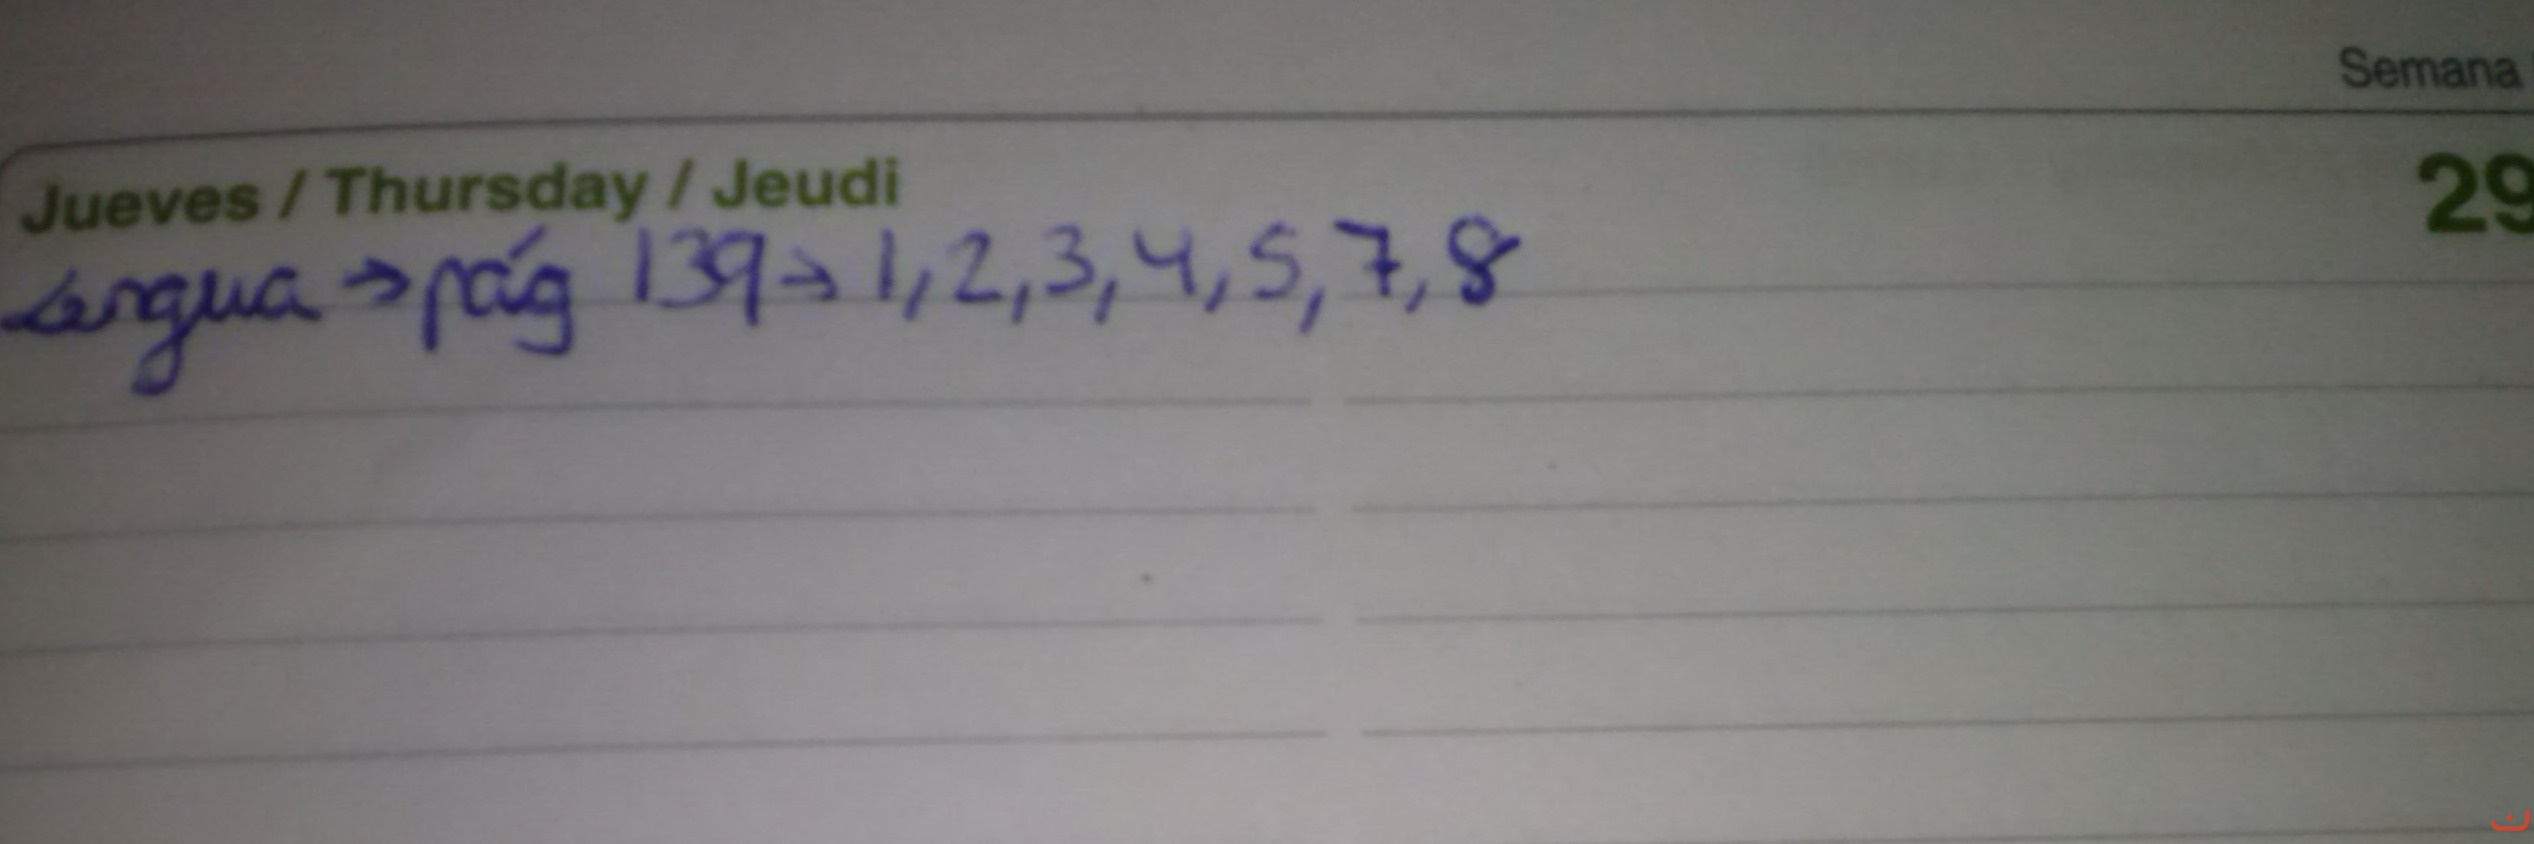 Semana
Jueves / Thursday / Jeudi 29
Lengua → pág 139 → 1, 2, 3, 4, 5, 7, 8